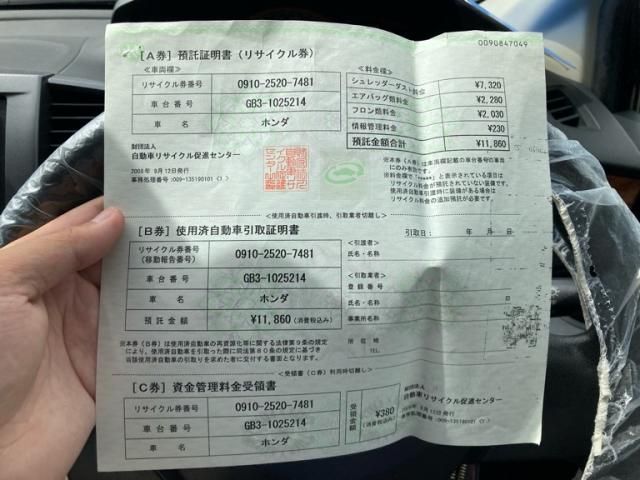 0090847049
[A券] 預託証明書(リサイクル券)
<車両欄>
リサイクル券番号 0910-2520-7481
車台番号 GB3-1025214
車 名 ホンダ
<料金欄>
シュレッダーダスト料金 ¥7,320
エアバッグ類料金 ¥2,280
フロン類料金 ¥2,030
情報管理料金 ¥230
預託金額合計 ¥11,860
財団法人
自動車リサイクル促進センター
2008年 9月12日発行
事務処理番号:009-135190101〈1〉
※本券(A券)は車両欄記載の車台番号の車両
にのみ有効です。
※料金欄で「****」と表示されている項目は
リサイクル料金が預託されていない装備です。
使用済自動車引渡時に装備がある場合は
リサイクル料金の追加預託が必要です。
<使用済自動車引渡時、引取業者切離し>
[B券] 使用済自動車引取証明書
引取日: 年 月 日
リサイクル券番号
(移動報告番号) 0910-2520-7481
車台番号 GB3-1025214
車 名 ホンダ
預託金額 ¥11,860 (消費税込み)
<引渡者>
氏名・名称
<引取業者>
登録番号
氏名・名称
事業所名称
所在地
TEL.
※本券(B券)は使用済自動車の再資源化等に関する法律第9条の規定
により、使用済自動車を引取った際に同法第80条の規定に基づき
当該使用済自動車の引取りを求めた者に交付する書面となります。
<受領書(C券)利用時切離し>
[C券] 資金管理料金受領書
リサイクル券番号 0910-2520-7481
車台番号 GB3-1025214
車 名 ホンダ
受領金額 ¥380
(消費税込み)
財団法人
自動車リサイクル促進センター
2008年 9月12日発行
事務処理番号:009-135190101〈1〉